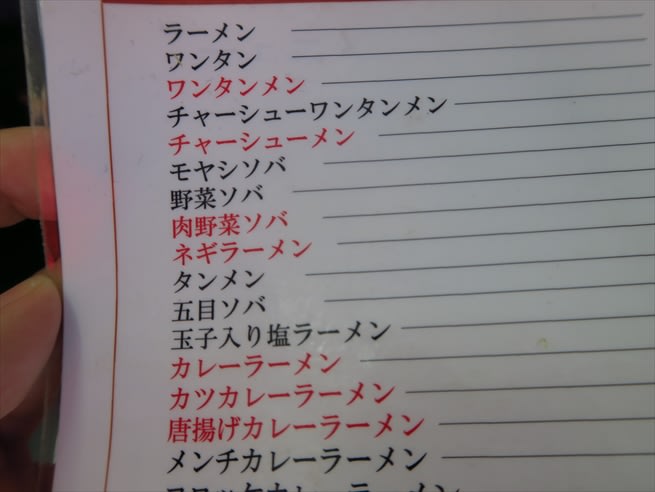 ラーメン
ワンタン
ワンタンメン
チャーシューワンタンメン
チャーシューメン
モヤシソバ
野菜ソバ
肉野菜ソバ
ネギラーメン
タンメン
五目ソバ
玉子入り塩ラーメン
カレーラーメン
カツカレーラーメン
唐揚げカレーラーメン
メンチカレーラーメン